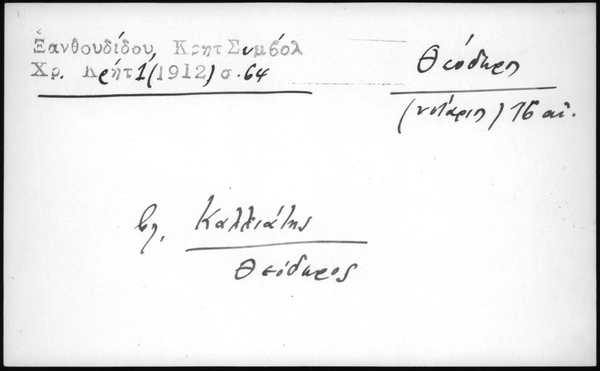 Ξανθουδίδου, Κρητ Συμβόλ
Χρ. Κρήτ 1 (1912) σ. 64
Θεόδωρο
(νοτάριο) 16 αι.
βλ. Καλλιάτης
Θεόδωρος